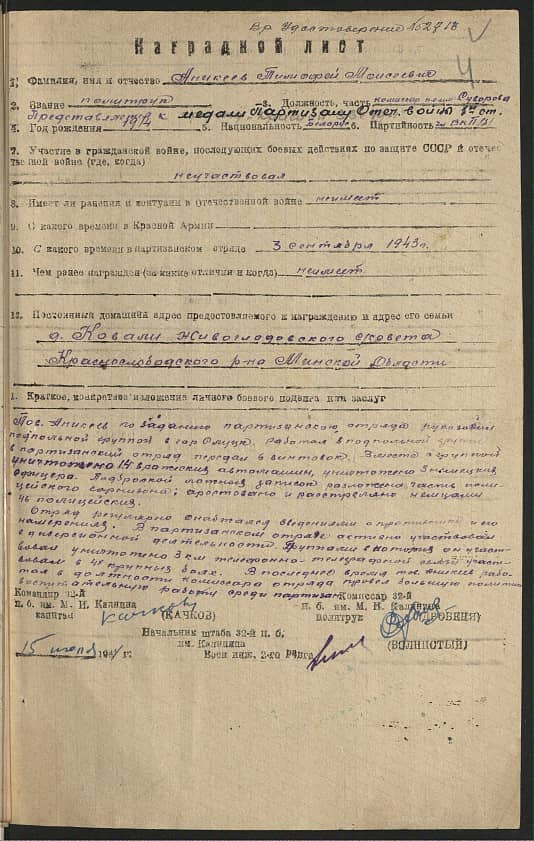 Вр Удостоверение №2918
Наградной лист
1. Фамилия, имя и отчество Аникеев Тимофей Моисеевич
2. Звание политрук 3. Должность, часть комиссар Суворова
Представляется к медали Партизану Отеч. войны ст.
4. Год рождения 1914 5. Национальность белорус 6. Партийность ВКП(б)
7. Участие в гражданской войне, последующих боевых действиях по защите СССР и отечес
твенной войне (где, когда)
неучаствовал
8. Имеет ли ранения и контузии в Отечественной войне неимеет
9. С какого времени в Красной Армии
10. С какого времени в партизанском отряде 3 сентября 1943 г.
11. Чем ранее награжден (за какие отличия и когда) неимеет
12. Постоянный домашний адрес предоставляемого к награждению и адрес его семьи
д. Ковали Живоглодовского с/совета
Краснослободского р-на Минской области
1. Краткое, конкретное изложение личного боевого подвига или заслуг
Тов. Аникеев по заданию партизанского отряда руководил
подпольной группой в гор Слуцк, работая в подпольной группе
в партизанский отряд передал 6 винтовок. Вместе с группой
уничтожено 14 вражеских автомашин, уничтожено 3 немецких
офицера. Подброской ложных записок разложена часть поли-
цейского гарнизона; арестовано и расстреляно немцами
46 полицейских.
Отряд регулярно снабжался сведениями о противнике и его
намерениях. В партизанском отряде активно участвовал
в диверсионной деятельности. Группами в которых он участ-
вовал уничтожено 3 км телефонно-телеграфной связи, участ-
вовал в 4х крупных боях. В последнее время тов Аникеев рабо-
тая в должности комиссара отряда провел большую политико
воспитательную работу среди партизан
Командир 32-й Комиссар 32-й
п. б. им. М. И. Калинина п. б. им. М. И. Калинина
капитан (КАЧКОВ) политрук (ДРОБЕНЯ)
Начальник штаба 32-й п. б.
им. Калинина
15 июля 1944 г. Воен инж. 2-го ранга (ВОЛНИСТЫЙ)